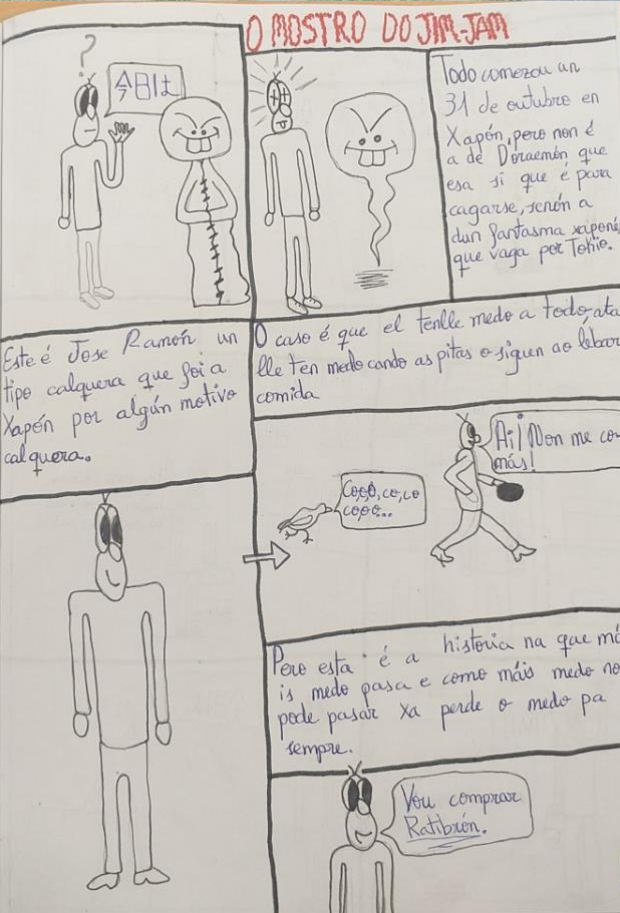 O MOSTRO DO JIM-JAM
?
今日は
Todo comezou un
31 de outubro en
Xapón, pero non é
a de Doraemón que
esa si que é para
cagarse, senón a
dun fantasma xaponé
que vaga por Tokio.
Este é Jose Ramón un
tipo calquera que foi a
Xapón por algún motivo
calquera.
O caso é que el tenlle medo a todo, ata
lle ten medo cando as pitas o siguen ao lebar
comida
Co,co,co,co
co,co...
Ai! Non me co-
más!
Pero esta é a historia na que má
is medo pasa e como máis medo no
pode pasar xa perde o medo pa
sempre.
Vou comprar
Ratibrón.